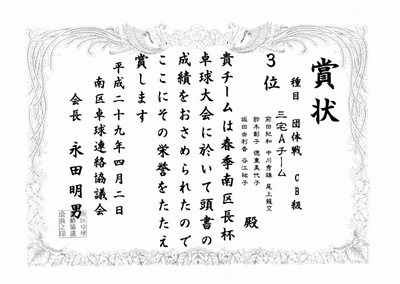 賞状
種目 団体戦 CB級
3位
三宅Aチーム
前田紀和 中川秀雄 尾上龍文
鈴木彰子 徳重美代子
坂田由利香 谷江祐子
殿
貴チームは春季南区長杯
卓球大会に於いて頭書の
成績をおさめられたので
ここにその栄誉をたたえ
賞します
平成二十九年四月二日
南区卓球連絡協議会
会長 永田明男